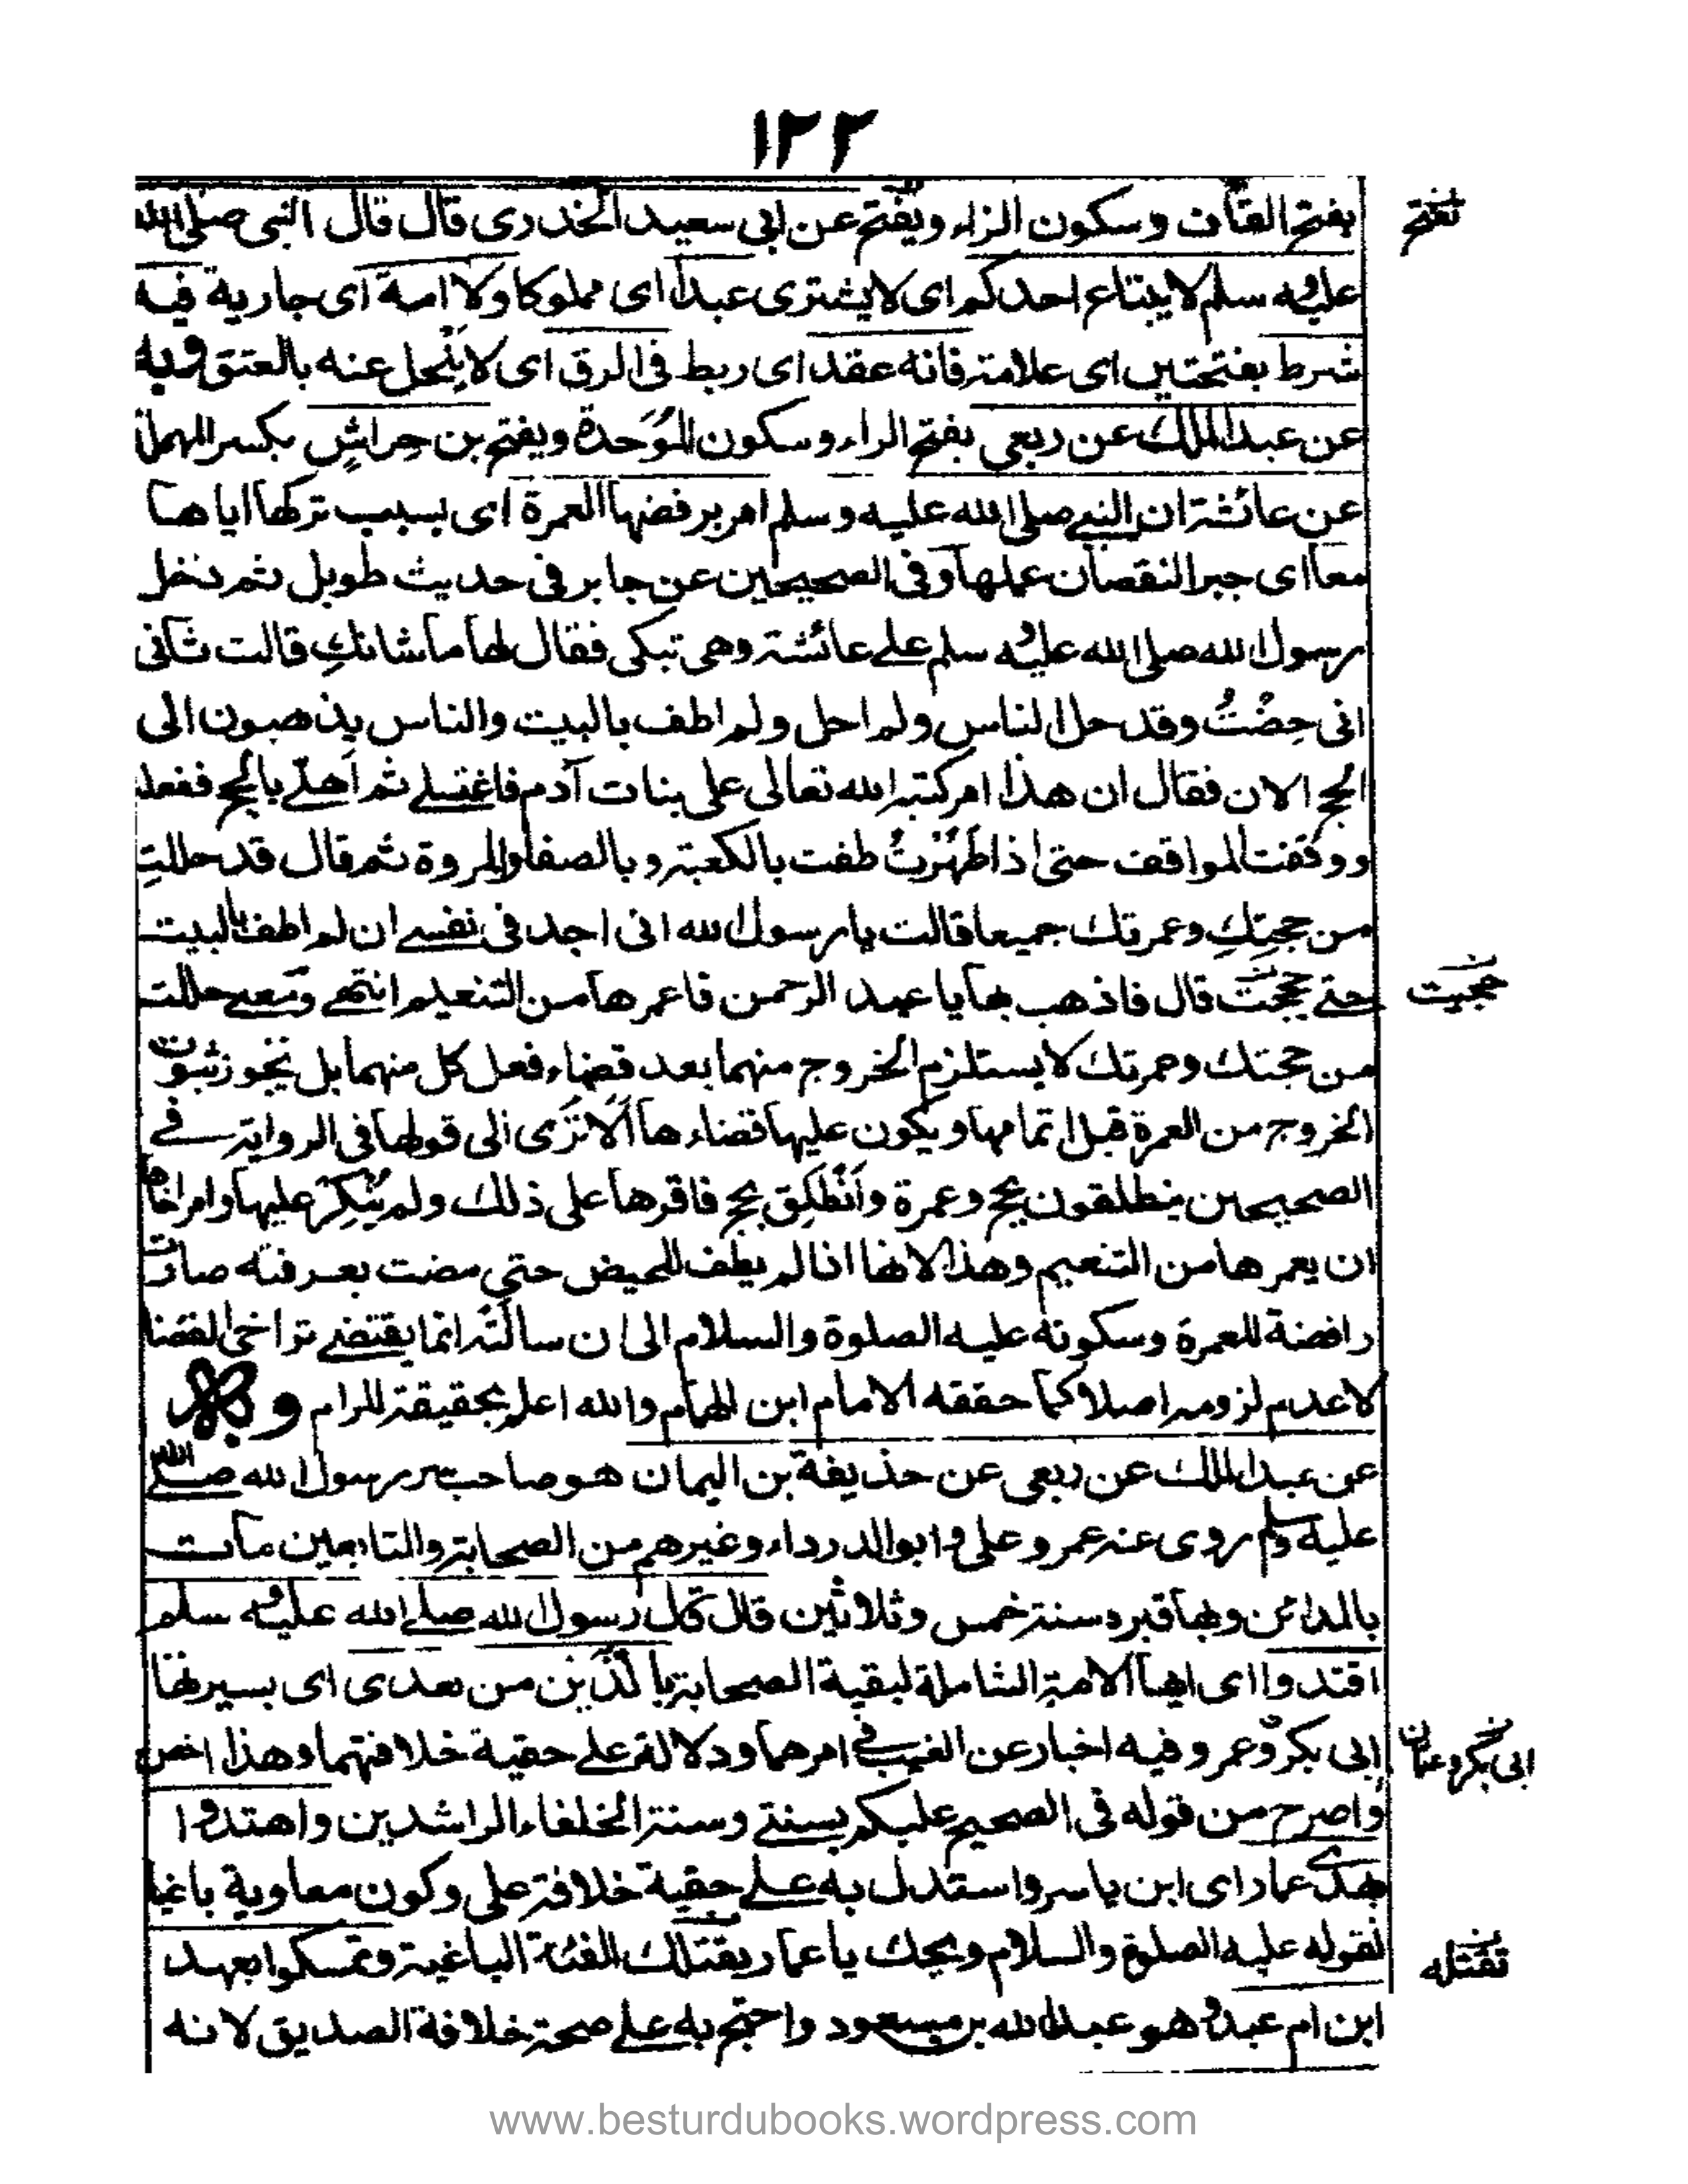 ١٢٢
بفتح القاف وسكون الزاء ويفتح عن ابي سعيد الخدرى قال قال النبي صلى الله
تفتح
عليه وسلم لا يبتاع احدكم اى لا يشترى عبدا اى مملوكا ولا امة اى جارية فيه
شرط بفتحتين اى علامة فانه عقد اى ربط فى الرق اى لا ينحل عنه بالعتق وبه
عن عبد الملك عن ربعي بفتح الراء وسكون الموحدة ويفتح بن حِراشٍ بكسر المهملة
عن عائشة ان النبي صلى الله عليه وسلم امر برفضها العمرة اى بسبب تركها اياها
معا اى جبر النقصان عملها وفى الصحيحين عن جابر فى حديث طويل ثم دخل
رسول الله صلى الله عليه وسلم على عائشة وهى تبكى فقال لها ما شانكِ قالت شانى
انى حِضْتُ وقد حل الناس ولم احل ولم اطف بالبيت والناس يذهبون الى
الحج الان فقال ان هذا امر كتبه الله تعالى على بنات آدم فاغتسلى ثم اهلّى بالحج ففعلت
ووقفت المواقف حتى اذا طَهُرْتُ طفت بالكعبة وبالصفا والمروة ثم قال قد حللتِ
من حجتِكِ وعمرتك جميعا قالت يا رسول الله انى اجد فى نفسى ان لم اطف بالبيت
حتى حججت قال فاذهب بها يا عبد الرحمن فاعمرها من التنعيم انتهى ومعنى حللت
حججيت
من حجتك وعمرتك لا يستلزم الخروج منهما بعد قضاء فعل كل منهما بل يجوز ثبوت
الخروج من العمرة قبل اتمامها ويكون عليها قضاءها الا ترى الى قولها فى الرواية فى
الصحيحين ينطلقون بحج وعمرة وانطلق بحج فاقرها على ذلك ولم يُنكِرْ عليها وامر اخاها
ان يعمرها من التنعيم وهذا لانها اذا لم يطف للحيض حتى مضت بعرفة صارت
رافضة للعمرة وسكوته عليه الصلوة والسلام الى ان سالَتْه انما يقتضى تراخى القضا
لا عدم لزومه اصلا كما حققه الامام ابن الهمام والله اعلم بحقيقة المرام وبه
عن عبد الملك عن ربعي عن حذيفة بن اليمان هو صاحب سر رسول الله صلى الله
عليه وسلم روى عنه عمر وعلى وابو الدرداء وغيرهم من الصحابة والتابعين مات
بالمدائن وبها قبره سنة خمس وثلاثين قال قال رسول الله صلى الله عليه وسلم
اقتدوا اى ايها الامة الشاملة لبقية الصحابة بالذين من بعدى اى بسيرتها
ابى بكر وعمر وفيه اخبار عن الغيب فى امرهما ودلالة على حقية خلافتهما وهذا اخص
ابى بكر وعثمان
واصرح من قوله فى الصحيح عليكم بسنتى وسنة الخلفاء الراشدين واهتدوا
بهدى عمار اى ابن ياسر واستدل به على حقية خلافة على وكون معاوية باغيا
لقوله عليه الصلوة والسلام ويحك يا عمار يقتلك الفئة الباغية وتمسكوا بعهد
تقتله
ابن ام عبد وهو عبد الله بن مسعود واحتج به على صحة خلافة الصديق لانه
www.besturdubooks.wordpress.com